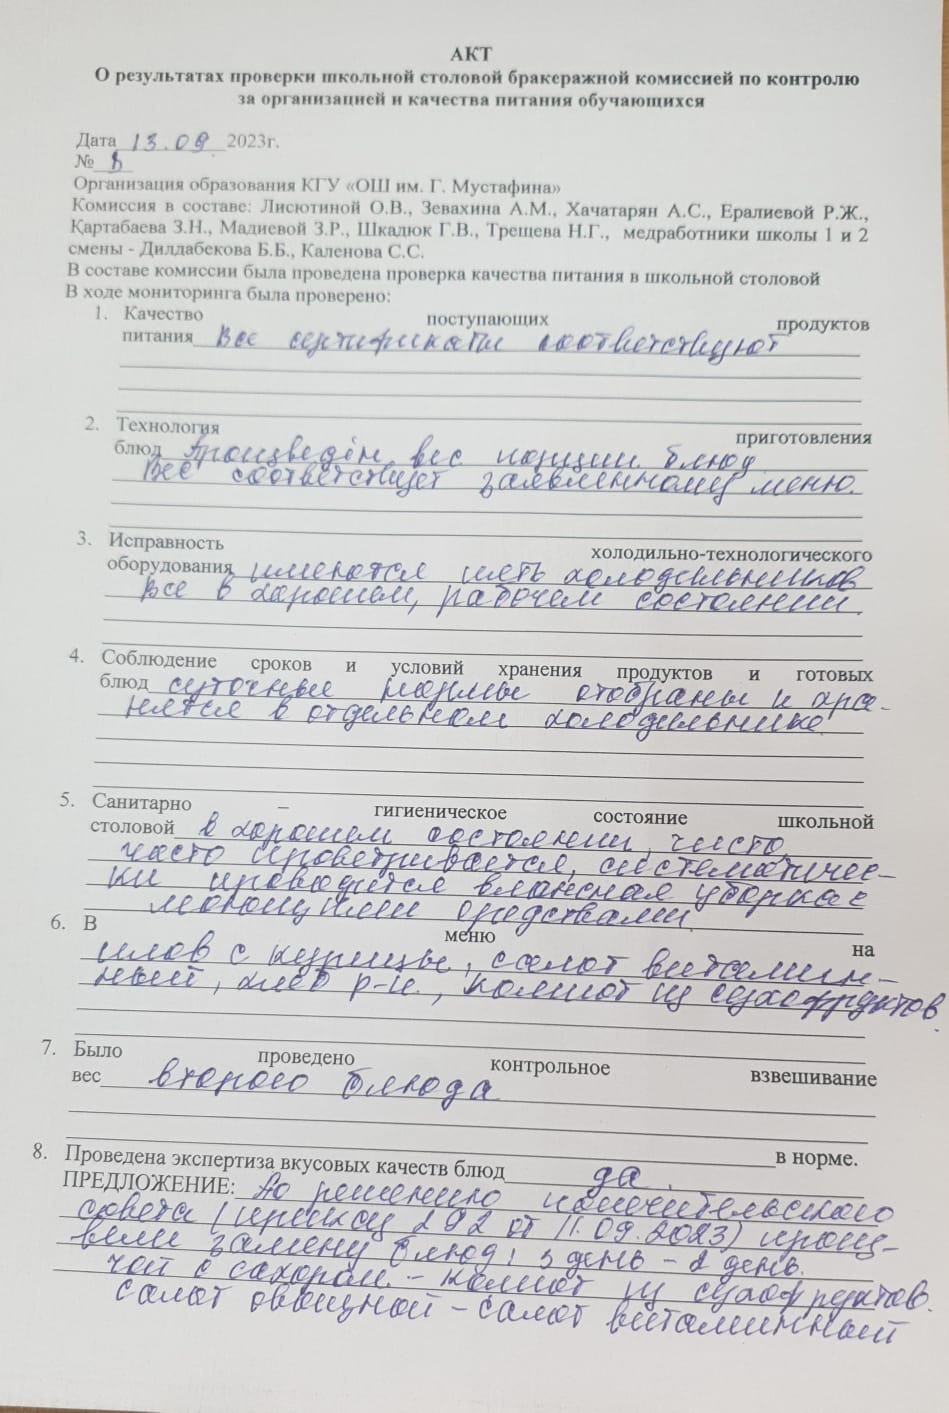 АКТ
О результатах проверки школьной столовой бракеражной комиссией по контролю
за организацией и качества питания обучающихся
Дата 13.09 2023г.
№
Организация образования КГУ «ОШ им. Г. Мустафина»
Комиссия в составе: Лисютиной О.В., Зевахина А.М., Хачатарян А.С., Ералиевой Р.Ж.,
Қартабаева З.Н., Мадиевой З.Р., Шкалюк Г.В., Трещева Н.Г., медработники школы 1 и 2
смены - Дилдабекова Б.Б., Каленова С.С.
В составе комиссии была проведена проверка качества питания в школьной столовой
В ходе мониторинга была проверено:
1. Качество поступающих продуктов
питания Все сертификаты соответствуют
2. Технология приготовления
блюд Произведён вес порции блюд
Все соответствует заявленному меню.
3. Исправность холодильно-технологического
оборудования имеются пять холодильников
все в хорошем, рабочем состоянии.
4. Соблюдение сроков и условий хранения продуктов и готовых
блюд суточные нормы отобраны и хра-
нятся в отдельном холодильнике.
5. Санитарно – гигиеническое состояние школьной
столовой в хорошем состоянии, чисто
часто проветривается, систематичес-
ки проводится влажная уборка с
моющими средствами.
6. В меню на
плов с курицы, салат витамин-
ный, хлеб р-п., компот из сухофруктов
7. Было проведено контрольное взвешивание
вес второго блюда
в норме.
8. Проведена экспертиза вкусовых качеств блюд да.
ПРЕДЛОЖЕНИЕ: По решению попечительского
совета (приказ 292 от 11.09.2023) произ-
вели замену блюд: 3 день – 2 день.
чай с сахаром. – компот из сухофруктов.
салат овощной – салат витаминный